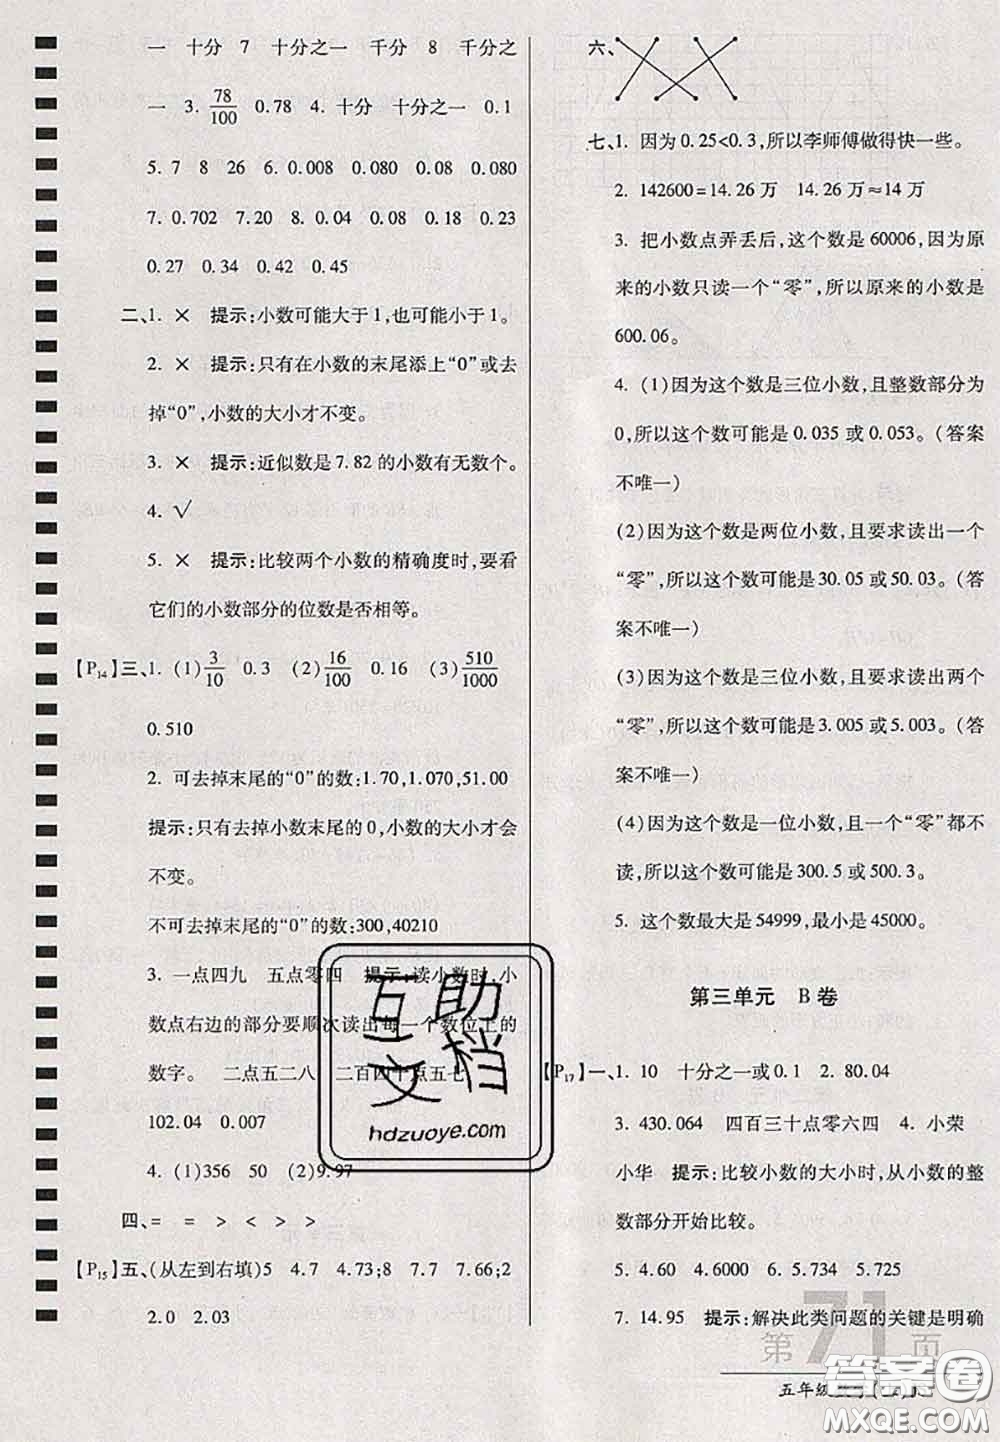 一 十分 7 十分之一 千分 8 千分之
一 3. 78/100 0.78 4. 十分 十分之一 0.1
5. 7 8 26 6. 0.008 0.080 0.08
7. 0.702 7.20 8. 0.04 0.08 0.18 0.23
0.27 0.34 0.42 0.45
二、1. × 提示:小数可能大于1,也可能小于1。
2. × 提示:只有在小数的末尾添上“0”或去
掉“0”,小数的大小才不变。
3. × 提示:近似数是7.82的小数有无数个。
4. √
5. × 提示:比较两个小数的精确度时,要看
它们的小数部分的位数是否相等。
【P14】三、1. (1)3/10 0.3 (2)16/100 0.16 (3)510/1000
0.510
2. 可去掉末尾的“0”的数:1.70,1.070,51.00
提示:只有去掉小数末尾的0,小数的大小才会
不变。
不可去掉末尾的“0”的数:300,40210
3. 一点四九 五点零四 提示:读小数时,小
数点右边的部分要顺次读出每一个数位上的
数字。 二点五二八 二百四十点五七
102.04 0.007
4. (1)356 50 (2)9.97
四、= = > < > >
【P15】五、(从左到右填)5 4.7 4.73;8 7.7 7.66;2
2.0 2.03
六、
七、1. 因为0.25<0.3,所以李师傅做得快一些。
2. 142600=14.26万 14.26万≈14万
3. 把小数点弄丢后,这个数是60006,因为原
来的小数只读一个“零”,所以原来的小数是
600.06。
4. (1)因为这个数是三位小数,且整数部分为
0,所以这个数可能是0.035或0.053。(答案
不唯一)
(2)因为这个数是两位小数,且要求读出一个
“零”,所以这个数可能是30.05或50.03。(答
案不唯一)
(3)因为这个数是三位小数,且要求读出两个
“零”,所以这个数可能是3.005或5.003。(答
案不唯一)
(4)因为这个数是一位小数,且一个“零”都不
读,所以这个数可能是300.5或500.3。
5. 这个数最大是54999,最小是45000。
第三单元 B卷
【P17】一、1. 10 十分之一或0.1 2. 80.04
3. 430.064 四百三十点零六四 4. 小荣
小华 提示:比较小数的大小时,从小数的整
数部分开始比较。
5. 4.60 4.6000 6. 5.715 5.725
7. 14.95 提示:解决此类问题的关键是明确
第71页
五年级
互助
文档
hdzuoye.com
答案圈
MXQE.COM